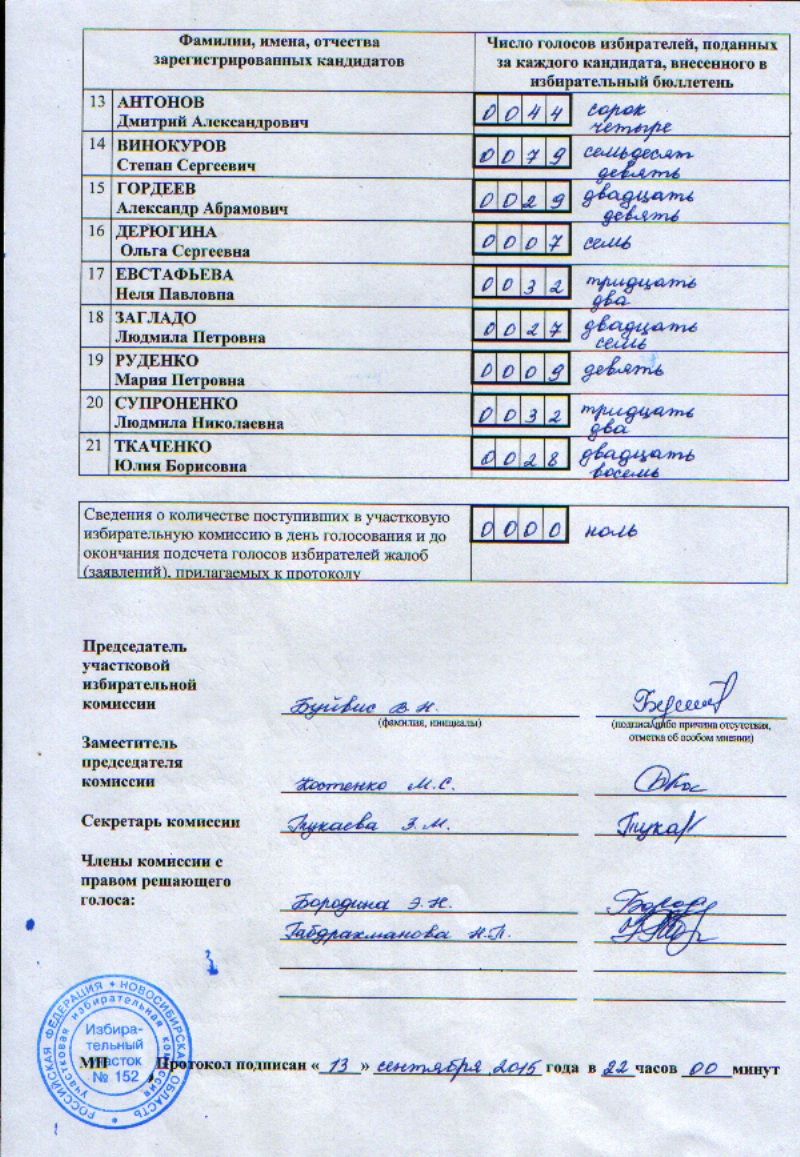 Фамилии, имена, отчества
зарегистрированных кандидатов
Число голосов избирателей, поданных
за каждого кандидата, внесенного в
избирательный бюллетень
13 АНТОНОВ
Дмитрий Александрович
0 0 4 4 сорок
четыре
14 ВИНОКУРОВ
Степан Сергеевич
0 0 7 9 семьдесят
девять
15 ГОРДЕЕВ
Александр Абрамович
0 0 2 9 двадцать
девять
16 ДЕРЮГИНА
Ольга Сергеевна
0 0 0 7 семь
17 ЕВСТАФЬЕВА
Неля Павловна
0 0 3 2 тридцать
два
18 ЗАГЛАДО
Людмила Петровна
0 0 2 7 двадцать
семь
19 РУДЕНКО
Мария Петровна
0 0 0 9 девять
20 СУПРОНЕНКО
Людмила Николаевна
0 0 3 2 тридцать
два
21 ТКАЧЕНКО
Юлия Борисовна
0 0 2 8 двадцать
восемь
Сведения о количестве поступивших в участковую
избирательную комиссию в день голосования и до
окончания подсчета голосов избирателей жалоб
(заявлений), прилагаемых к протоколу
0 0 0 0 ноль
Председатель
участковой
избирательной
комиссии
Буйвис В. Н.
(фамилия, инициалы)
(подпись либо причина отсутствия,
отметка об особом мнении)
Заместитель
председателя
комиссии
Костенко М.С.
Секретарь комиссии Тукаева З.М.
Члены комиссии с
правом решающего
голоса:
Бородина Э.Н.
Габдрахманова Н.П.
РОССИЙСКАЯ ФЕДЕРАЦИЯ * НОВОСИБИРСКАЯ ОБЛАСТЬ
участковая избирательная комиссия
Избира-
тельный
участок
№ 152
МП Протокол подписан « 13 » сентября 2015 года в 22 часов 00 минут